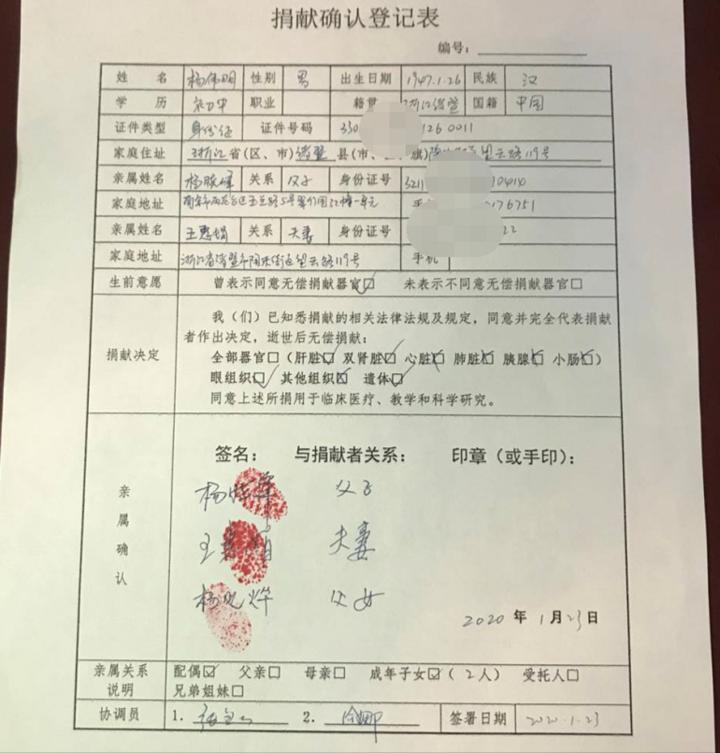 捐献确认登记表
编号：
姓 名 杨伟明 性别 男 出生日期 1947.1.26 民族 汉
学 历 初中 职业 籍贯 浙江诸暨 国籍 中国
证件类型 身份证 证件号码 330 126 0011
家庭住址 浙江省(区、市)诸暨县(市、 旗) 云路119号
亲属姓名 杨 关系 父子 身份证号 3211 10414
家庭地址 南京市雨花台区玉兰路5号 一单元 手 176751
亲属姓名 王惠娟 关系 夫妻 身份证号 22
家庭地址 浙江省诸暨市陶朱街道 云路119号 手机
生前意愿 曾表示同意无偿捐献器官☑ 未表示不同意无偿捐献器官□
我（们）已知悉捐献的相关法律法规及规定，同意并完全代表捐献
者作出决定，逝世后无偿捐献：
捐献决定 全部器官□（肝脏☑ 双肾脏☑ 心脏☑ 肺脏☑ 胰腺☑ 小肠☑）
眼组织☑ 其他组织☒ 遗体☑
同意上述所捐用于临床医疗、教学和科学研究。
亲属确认
签名： 与捐献者关系： 印章（或手印）：
杨 父子
王惠娟 夫妻
杨 烨 父女
2020 年 1月23日
亲属关系说明 配偶☑ 父亲□ 母亲□ 成年子女☑（ 2人） 受托人□
兄弟姐妹□
协调员 1. 2. 签署日期 2020.1.23